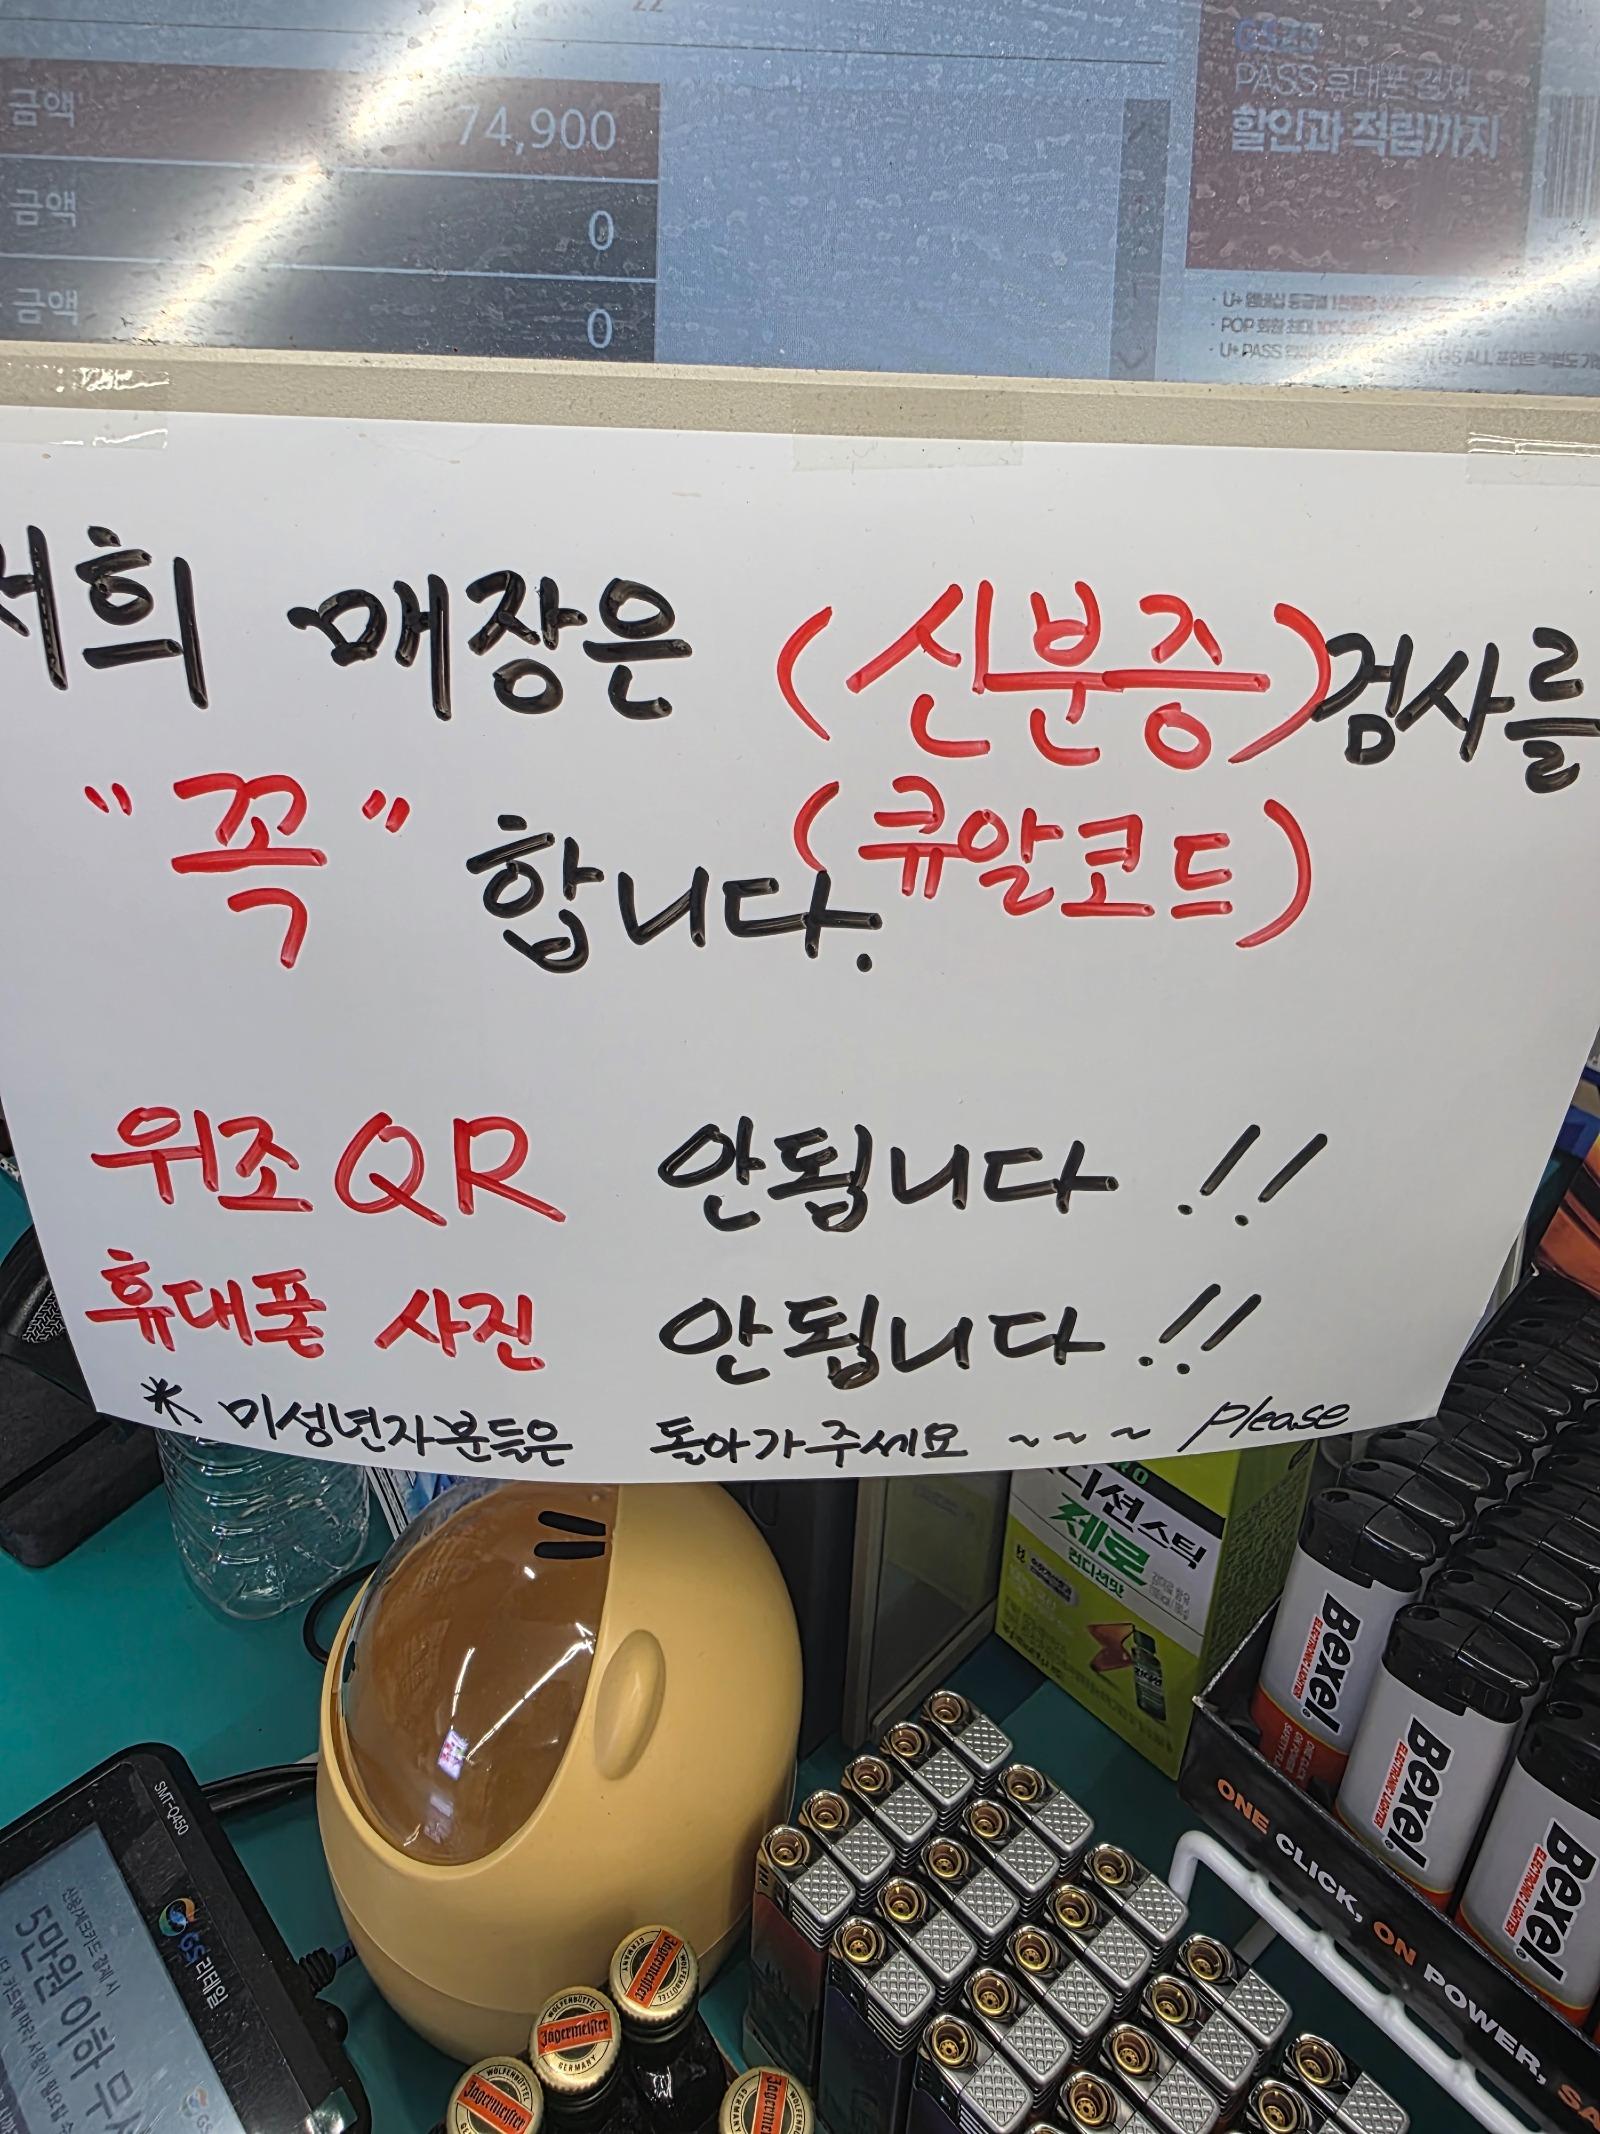 금액 74,900
금액 0
금액 0
GS25
PASS 휴대폰 결제
할인과 적립까지
저희 매장은 (신분증) 검사를
"꼭" 합니다. (큐알코드)
위조QR 안됩니다 !!
휴대폰 사진 안됩니다 !!
※ 미성년자분들은 돌아가주세요 ~~~ please
디션스틱
제로
컨디션맛
Bexel
ELECTRONIC LIGHTER
Bexel
ELECTRONIC LIGHTER
Bexel
ELECTRONIC LIGHTER
ONE CLICK, ON POWER, SA
SMT-Q450
GS리테일
신용/체크카드 결제 시
5만원 이하 무서
WOLFENBÜTTEL
Jägermeister
GERMANY
WOLFENBÜTTEL
Jägermeister
GERMANY
WOLFENBÜTTEL
Jägermeister
Jägermeister